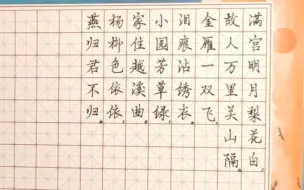 满宫明月梨花白，
故人万里关山隔。
金雁一双飞，
泪痕沾绣衣。
小园芳草绿，
家住越溪曲。
杨柳色依依，
燕归君不归。